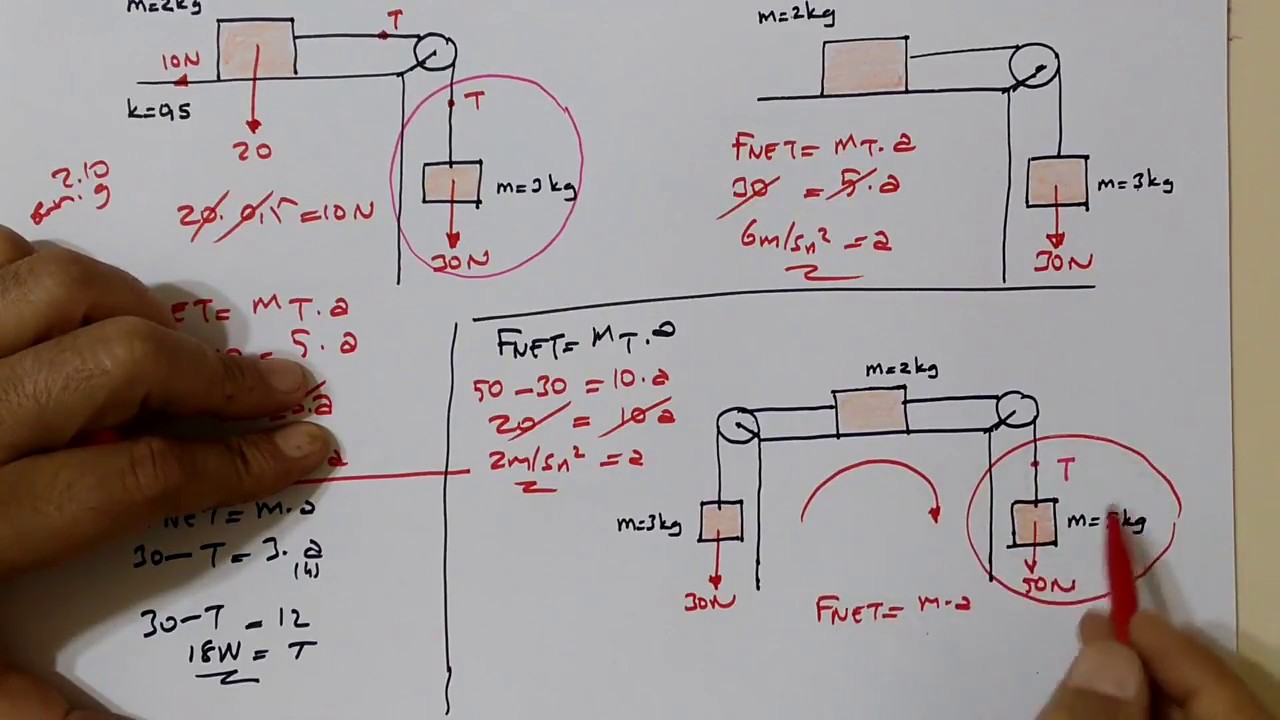 m=2kg
T
10N
k=0,5
20
T
m=3kg
30N
2.10
g
20. 0,5=10N
NET= mT.a
= 5.a
.a
a
FNET= m.a
30-T = 3. a
(4)
30-T = 12
18N = T
m=2kg
FNET= mT.a
30 = 5.a
6m/sn² = a
m=3kg
30N
FNET= mT.a
50-30 = 10.a
20 = 10a
2m/sn² = a
m=2kg
m=3kg
30N
T
m= kg
50N
FNET= m.a